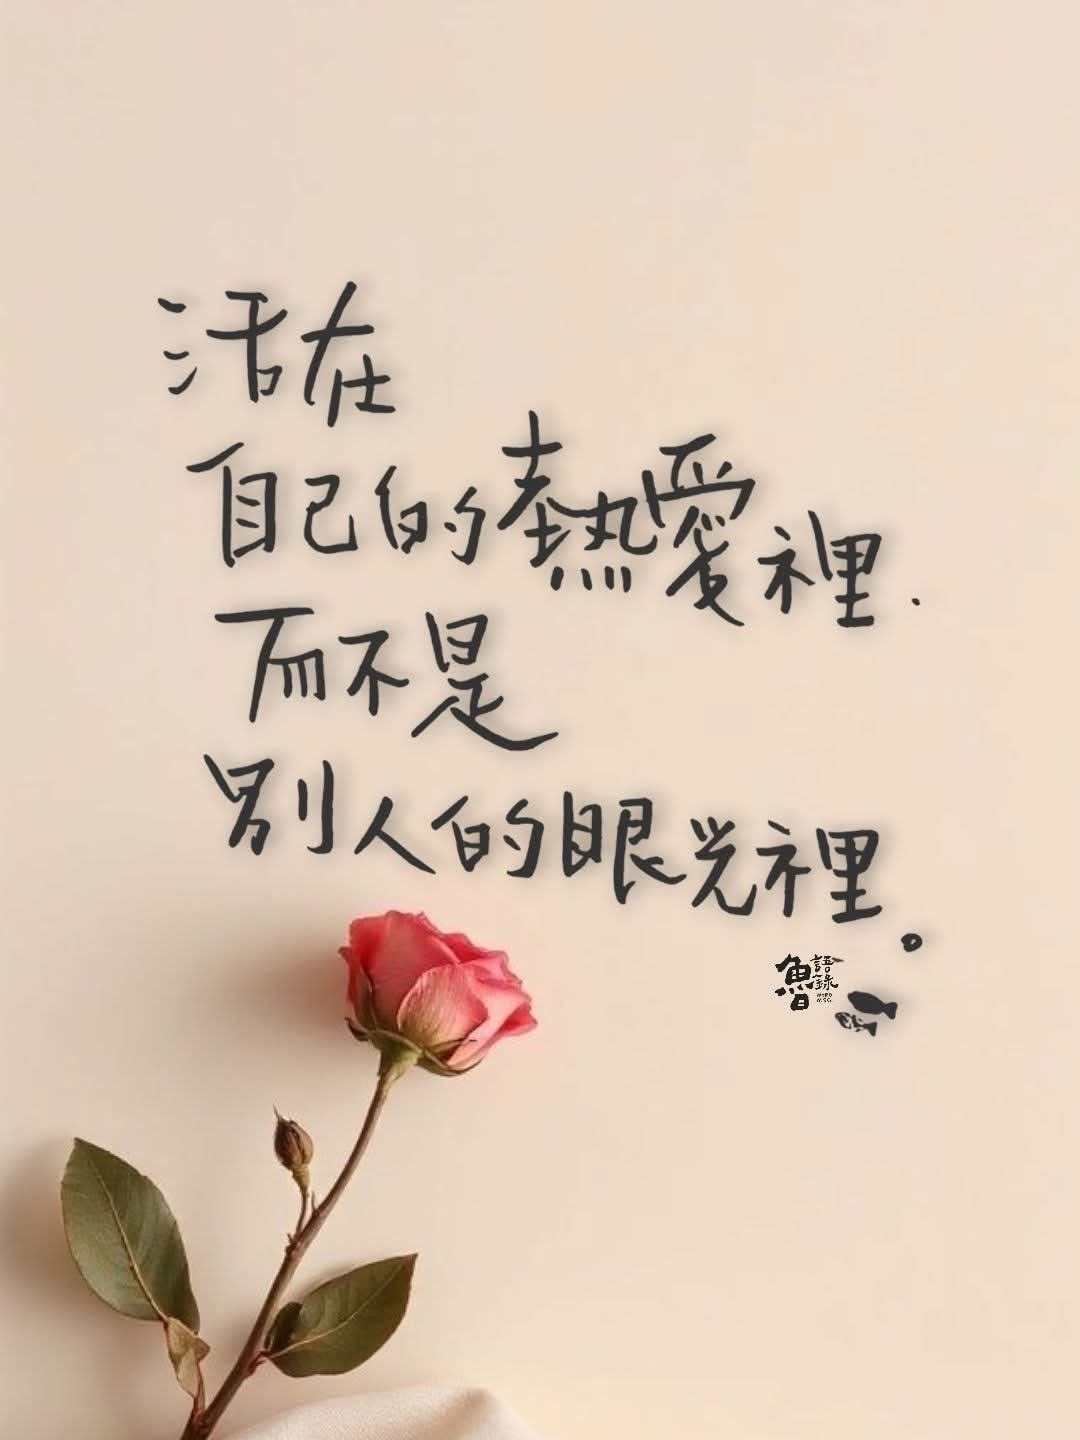 活在
自己的熱愛裡.
而不是
別人的眼光裡。
魯語錄